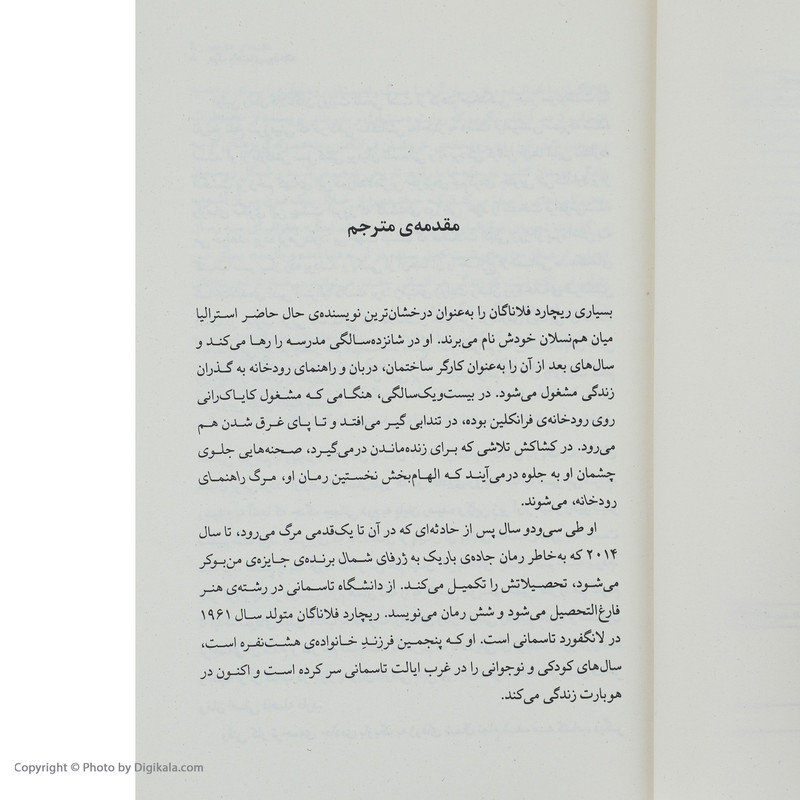 مقدمه‌ی مترجم
بسیاری ریچارد فلاناگان را به‌عنوان درخشان‌ترین نویسنده‌ی حال حاضر استرالیا
میان هم‌نسلان خودش نام می‌برند. او در شانزده‌سالگی مدرسه را رها می‌کند و
سال‌های بعد از آن را به‌عنوان کارگر ساختمان، دربان و راهنمای رودخانه به گذران
زندگی مشغول می‌شود. در بیست‌ویک‌سالگی، هنگامی که مشغول کایاک‌رانی
روی رودخانه‌ی فرانکلین بوده، در تندابی گیر می‌افتد و تا پای غرق شدن هم
می‌رود. در کشاکش تلاشی که برای زنده‌ماندن درمی‌گیرد، صحنه‌هایی جلوی
چشمان او به جلوه درمی‌آیند که الهام‌بخش نخستین رمان او، مرگ راهنمای
رودخانه، می‌شوند.
او طی سی‌ودو سال پس از حادثه‌ای که در آن تا یک‌قدمی مرگ می‌رود، تا سال
۲۰۱۴ که به‌خاطر رمان جاده‌ی باریک به ژرفای شمال برنده‌ی جایزه‌ی من‌بوکر
می‌شود، تحصیلاتش را تکمیل می‌کند. از دانشگاه تاسمانی در رشته‌ی هنر
فارغ‌التحصیل می‌شود و شش رمان می‌نویسد. ریچارد فلاناگان متولد سال ۱۹۶۱
در لانگفورد تاسمانی است. او که پنجمین فرزندِ خانواده‌ی هشت‌نفره است،
سال‌های کودکی و نوجوانی را در غرب ایالت تاسمانی سر کرده است و اکنون در
هوبارت زندگی می‌کند.
Copyright © Photo by Digikala.com